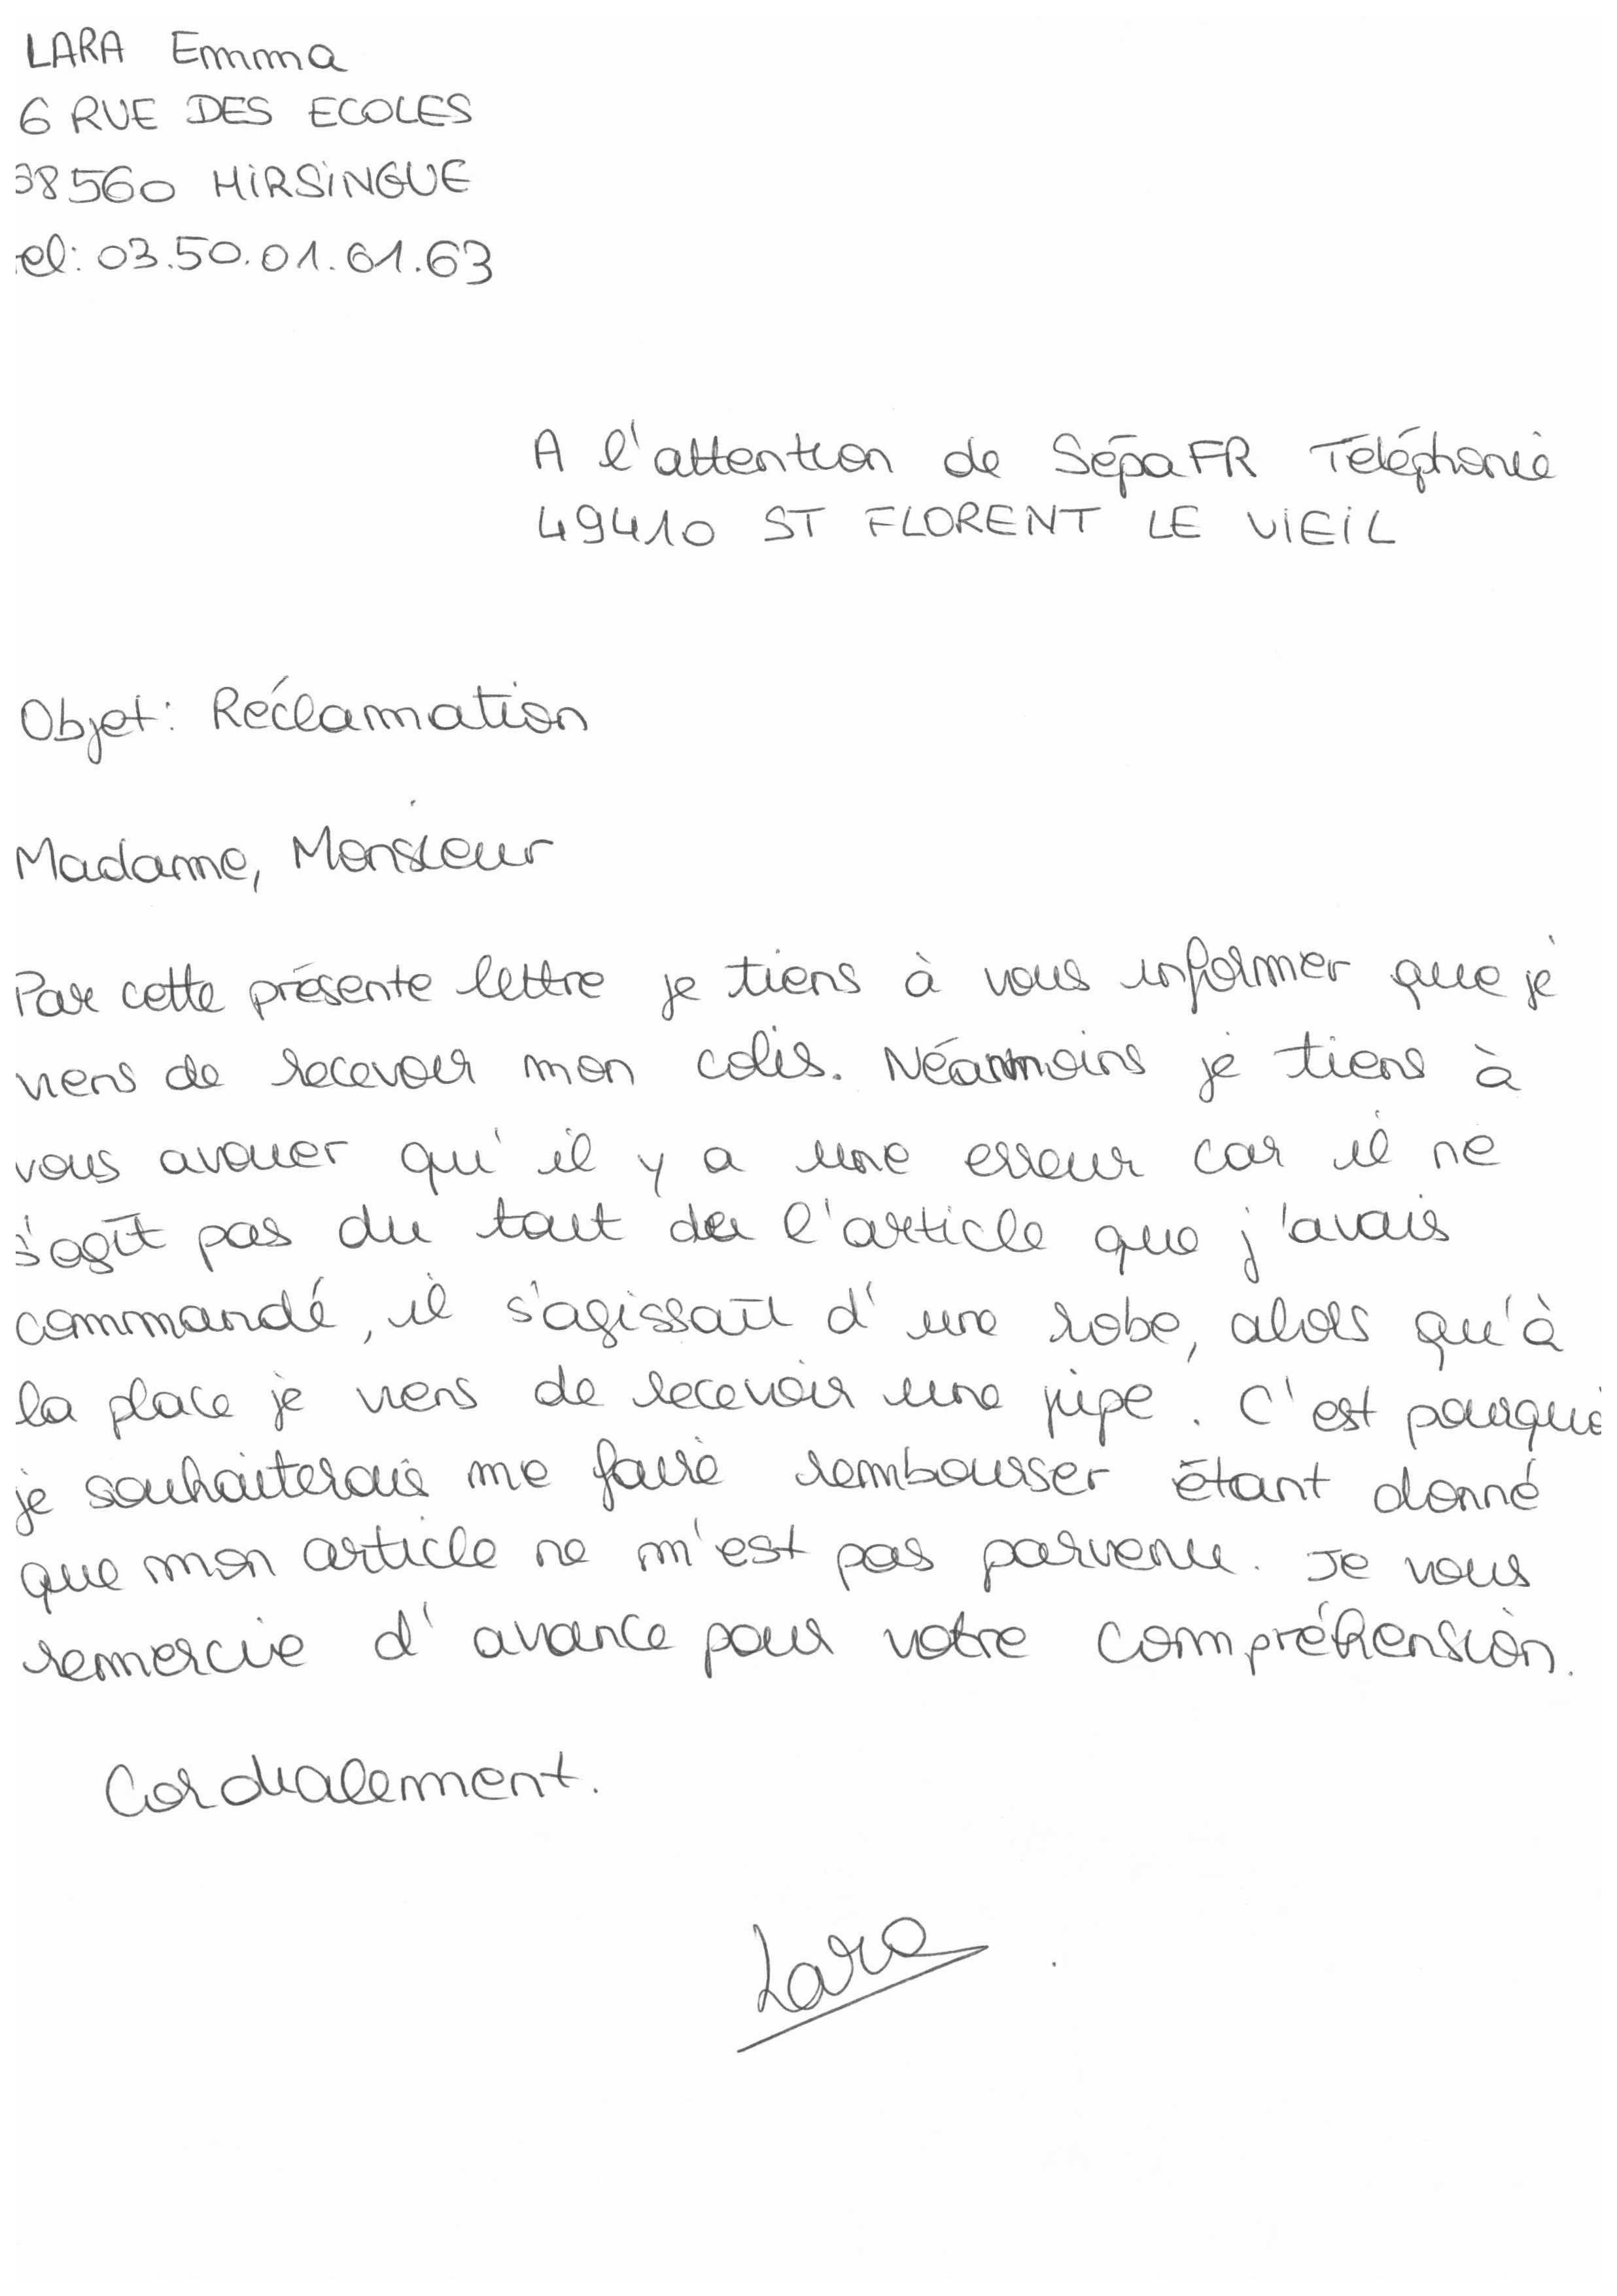 LARA Emma
6 RUE DES ECOLES
38560 HiRSiNGUE
el: 03.50.01.61.63
A l'attention de SépaFR Téléphonie
49410 ST FLORENT LE VIEIL
Objet: Réclamation
Madame, Monsieur
Par cette présente lettre je tiens à vous informer que je
viens de recevoir mon colis. Néanmoins je tiens à
vous avouer qu'il y a une erreur car il ne
s'agit pas du tout de l'article que j'avais
commandé, il s'agissait d'une robe, alors qu'à
la place je viens de recevoir une jupe. C'est pourquoi
je souhaiterais me faire rembourser étant donné
que mon article ne m'est pas parvenu. Je vous
remercie d'avance pour votre compréhension.
Cordialement.
Lara